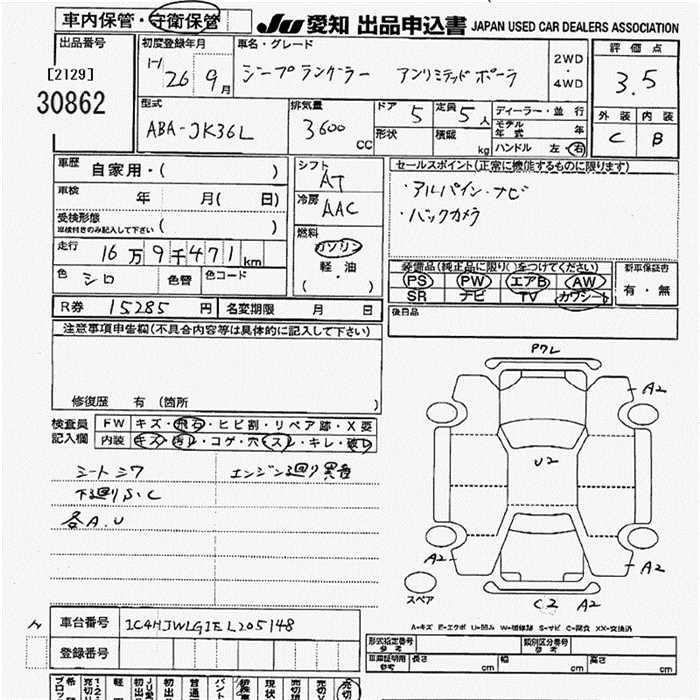 車内保管・守衛保管
JU 愛知 出品申込書 JAPAN USED CAR DEALERS ASSOCIATION
出品番号 初度登録年月 車名・グレード 2WD・4WD 評価点
[2129]
30862
26年 9月 ジープラングラー アンリミテッドポーラ 3.5
型式 排気量 ドア 定員 ディーラー・並行 外装 内装
ABA-JK36L 3600 CC 5 5人 モデル年式 年 C B
形状 積載 kg ハンドル 左・右
車歴 自家用・( ) シフト AT セールスポイント(正常に機能するものに限ります)
車検 年 月( 日) 冷房 AAC ・アルパインナビ
受検形態 ・バックカメラ
※車検付きのみ記入して下さい ( )
走行 16万9千471km 燃料 ガソリン 軽・油 ( ・ )
装備品(純正品に限り○をつけてください) 新車保証書
色 シロ 色替 色コード PS PW エアB AW 有・無
SR ナビ TV カワシート
R券 15285円 名変期限 月 日 後日品
注意事項申告欄(不具合内容等は具体的に記入して下さい)
修復歴 有 (箇所 )
検査員記入欄 FW キズ・飛石・ヒビ割・リペア跡・X要
内装 キズ・汚レ・コゲ・穴・スレ・キレ・破レ
シートシワ エンジン廻り異音
下廻りS.C
各A.U
Pクレ
A2
U2
A2 A2
スペア C2 A2
A=キズ E=エクボ U=凹み W=補修跡 S=サビ C=腐食 XX=交換済
車台番号 1C4HJWLG1EL205148
登録番号
形式指定番号 参考 類別区分番号 参考
車庫証明用 参考 長さ cm 幅 cm 高さ cm